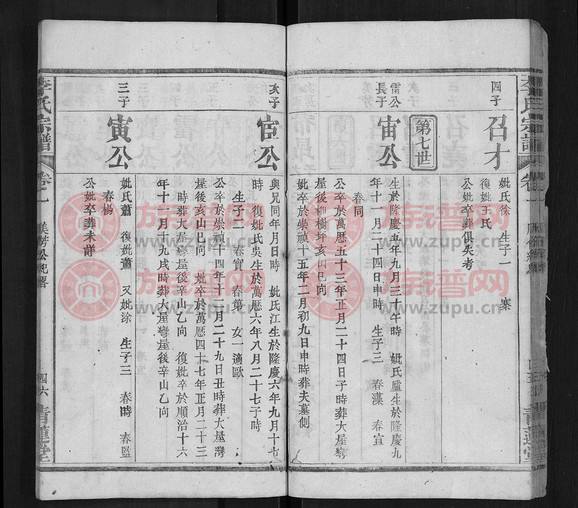 李氏宗譜
四子
召才
妣氏徐 生子一 寀
復妣王氏
公妣卒葬俱失考
第七世
雷公
長子
宙公
生於隆慶五年九月三十午時 妣氏盧生於隆慶九
年十一月二十四日申時 生子三 春藻 春宣
春同
公卒於萬曆五十三年正月二十四日子時葬大屋灣
屋後 亥山巳向
妣卒於崇禎十五年二月初九日申時葬夫墓側
次子
宦公
與兄同年月日時 妣氏江生於隆慶六年九月十七
時 復妣氏吳生於萬曆六年八月二十七子時
生子二 春寶 春第 女一適歐
公卒於崇禎十四年十二月二十九日丑時葬大屋灣
屋後亥山巳向 妣卒於萬曆四十七年正月二十三
時葬大屋灣屋後辛山乙向 復妣卒於順治十六
年十一月十九戌時葬大屋灣屋後辛山乙向
三子
寅公
妣氏蕭 復妣蕭 又妣涂 生子三 春時 春監
春楊
公妣卒葬未詳
李氏宗譜
卷一
美芳公紀畧
四六
青蓮堂
族谱网
www.zupu.cn